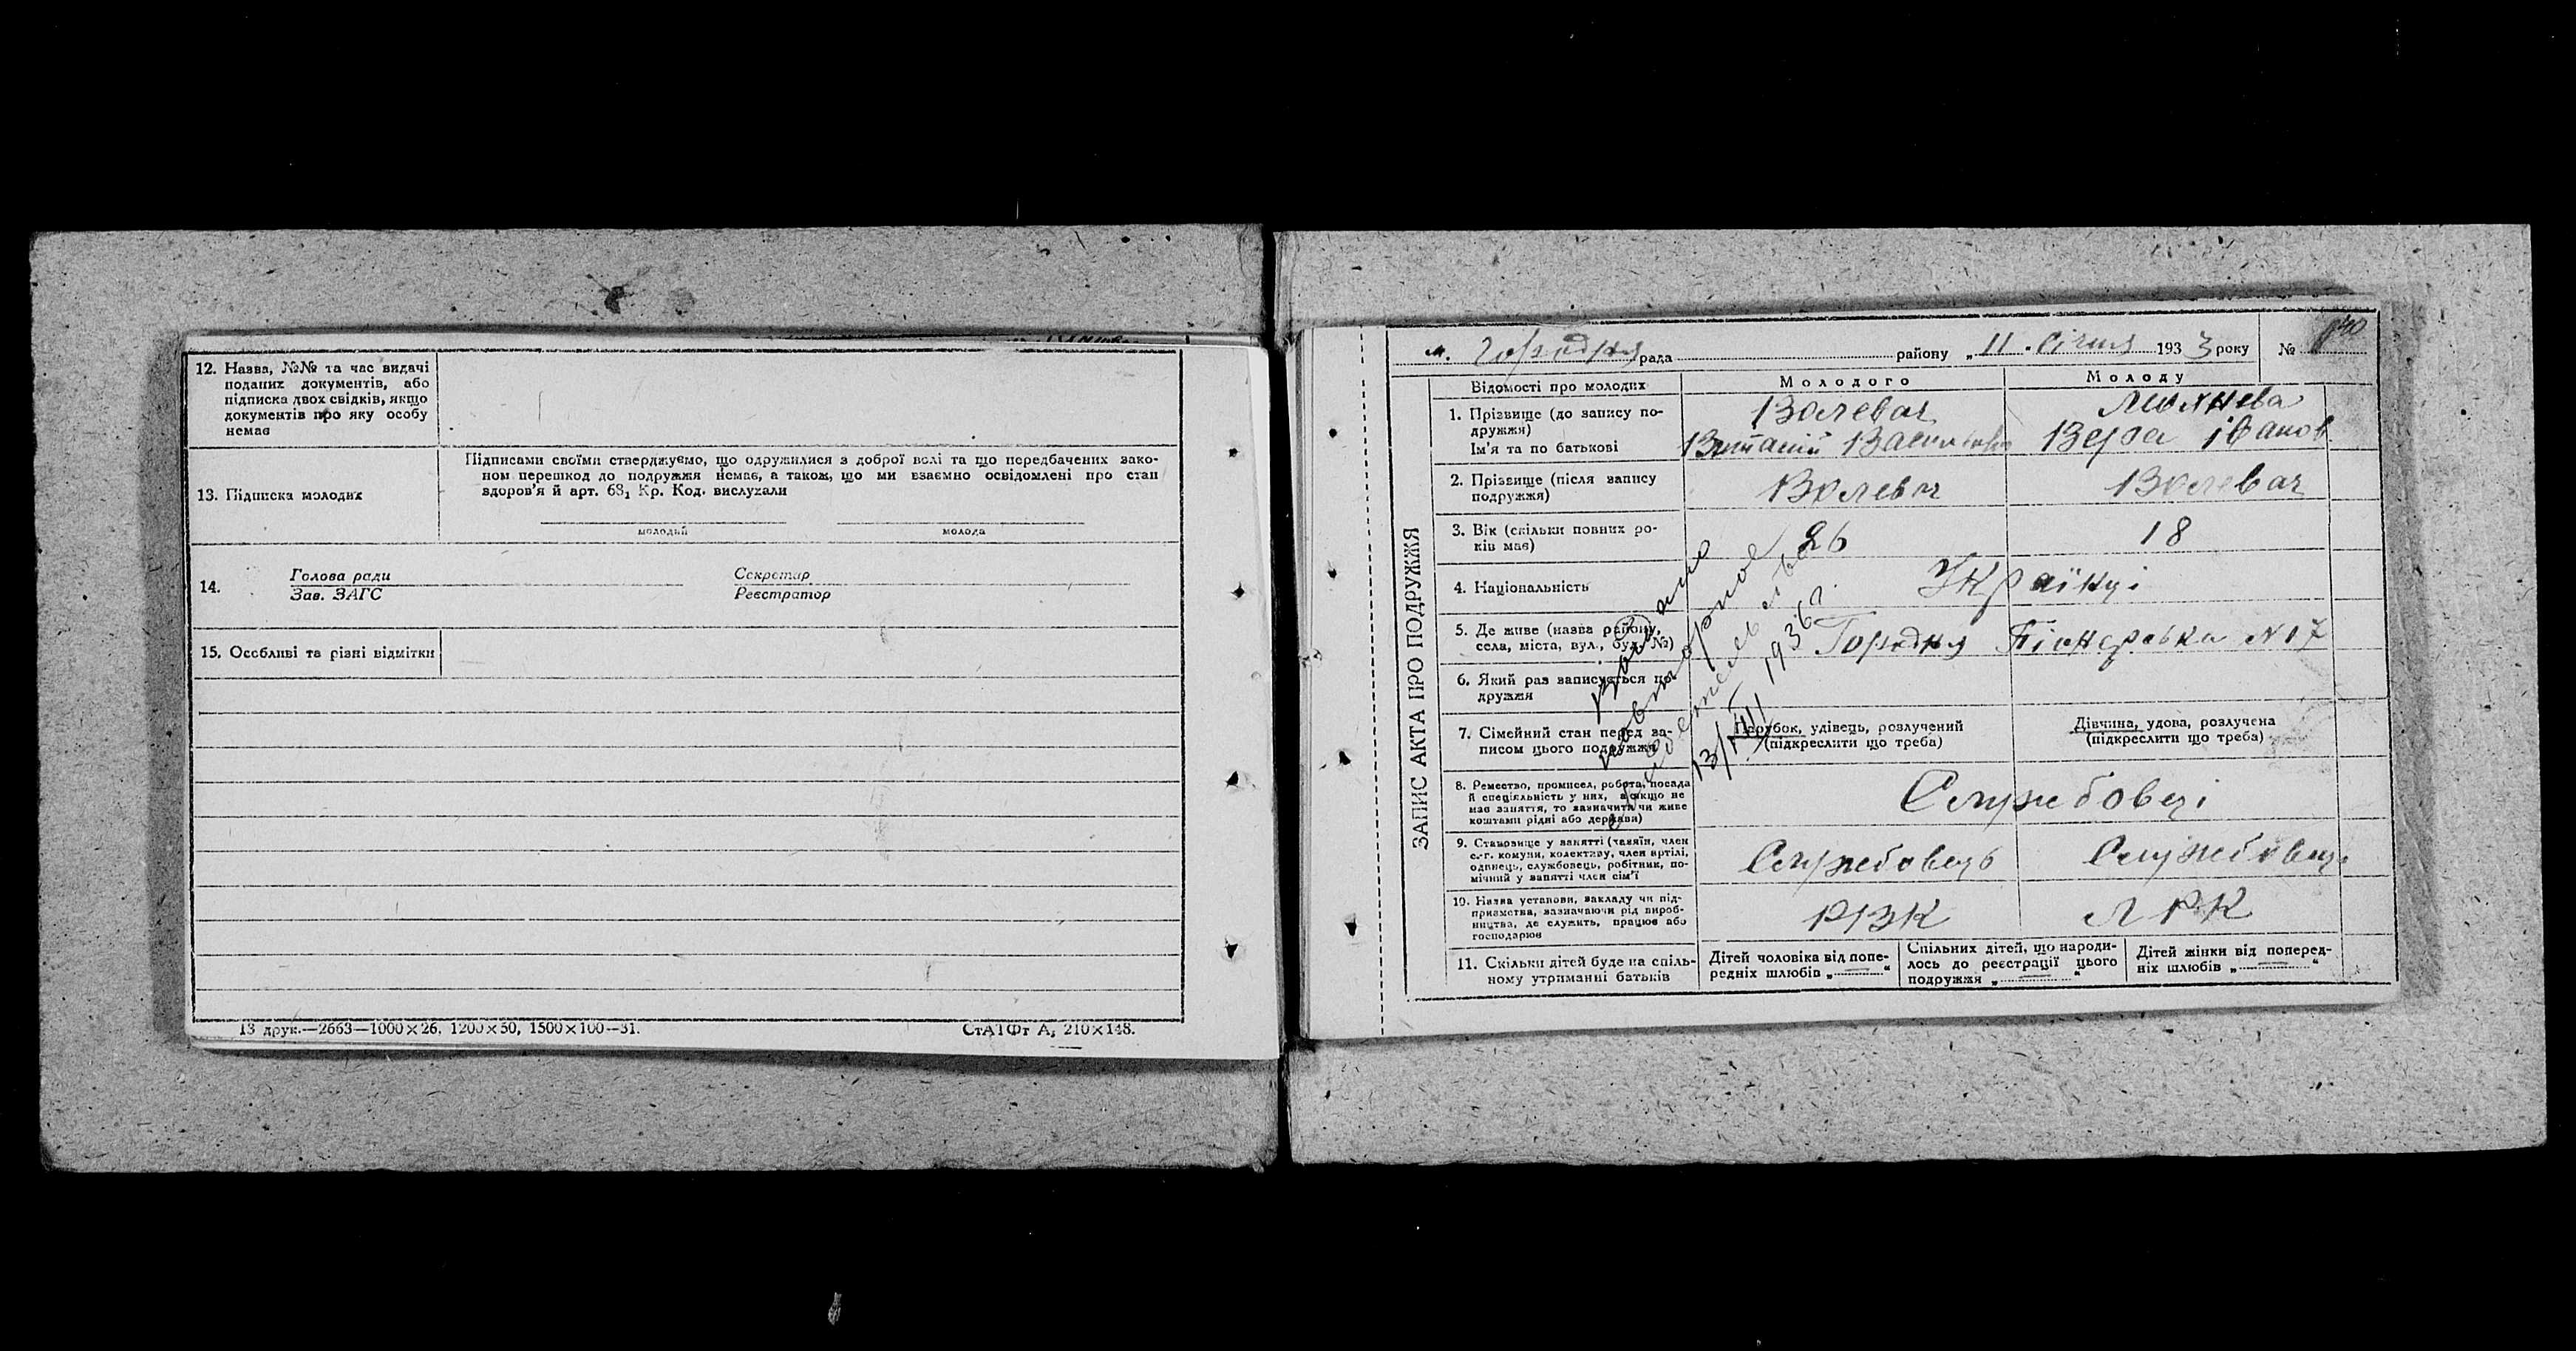 12. Назва, №№ та час видачі
поданих документів, або
підписка двох свідків, якщо
документів про яку особу
немає
13. Підписка молодих
Підписами своїми стверджуємо, що одружилися з доброї волі та що передбачених зако-
ном перешкод до подружжя немає, а також, що ми взаємно освідомлені про стан
здоров'я й арт. 68₁ Кр. Код. вислухали
молодий молода
14. Голова ради Секретар
Зав. ЗАГС Реєстратор
15. Особливі та різні відмітки
13 друк.—2663—1000×26, 1200×50, 1500×100—31. СтАТФт А₅ 210×148.
ЗАПИС АКТА ПРО ПОДРУЖЖЯ
м. Городня рада району „ 11 . Січня 1933 року №
Відомості про молодих Молодого Молоду
1. Прізвище (до запису по-
дружжя)
Ім'я та по батькові
Волевач
Віталій Васильович
Вера Іванов
2. Прізвище (після запису
подружжя)
Волевач Волевач
3. Вік (скільки повних ро-
ків має)
26 18
4. Національність
Українці
5. Де живе (назва району,
села, міста, вул., буд. №)
Городня Піонерська N 17
6. Який раз записується по-
дружжя
7. Сімейний стан перед за-
писом цього подружжя
Парубок, удівець, розлучений
(підкреслити що треба)
Дівчина, удова, розлучена
(підкреслити що треба)
8. Ремество, промисел, робота, посада
й спеціяльність у них, а якщо не
має заняття, то зазначити чи живе
коштами рідні або держави)
Службовці
9. Становище у занятті (хазяїн, член
с.-г. комуни, колективу, член артілі,
одинець, службовець, робітник, по-
мічний у занятті член сім'ї
Службовець Службовець
10. Назва установи, закладу чи під-
приємства, зазначаючи рід вироб-
ництва, де служить, працює або
господарює
РВК ЛРК
11. Скільки дітей буде на спіль-
ному утриманні батьків
Дітей чоловіка від попе-
редніх шлюбів „ — “
Спільних дітей, що народи-
лось до реєстрації цього
подружжя „ — “
Дітей жінки від поперед-
ніх шлюбів „ — “
Выдано
повторное
свидетельство
13/VIII 1936 г.